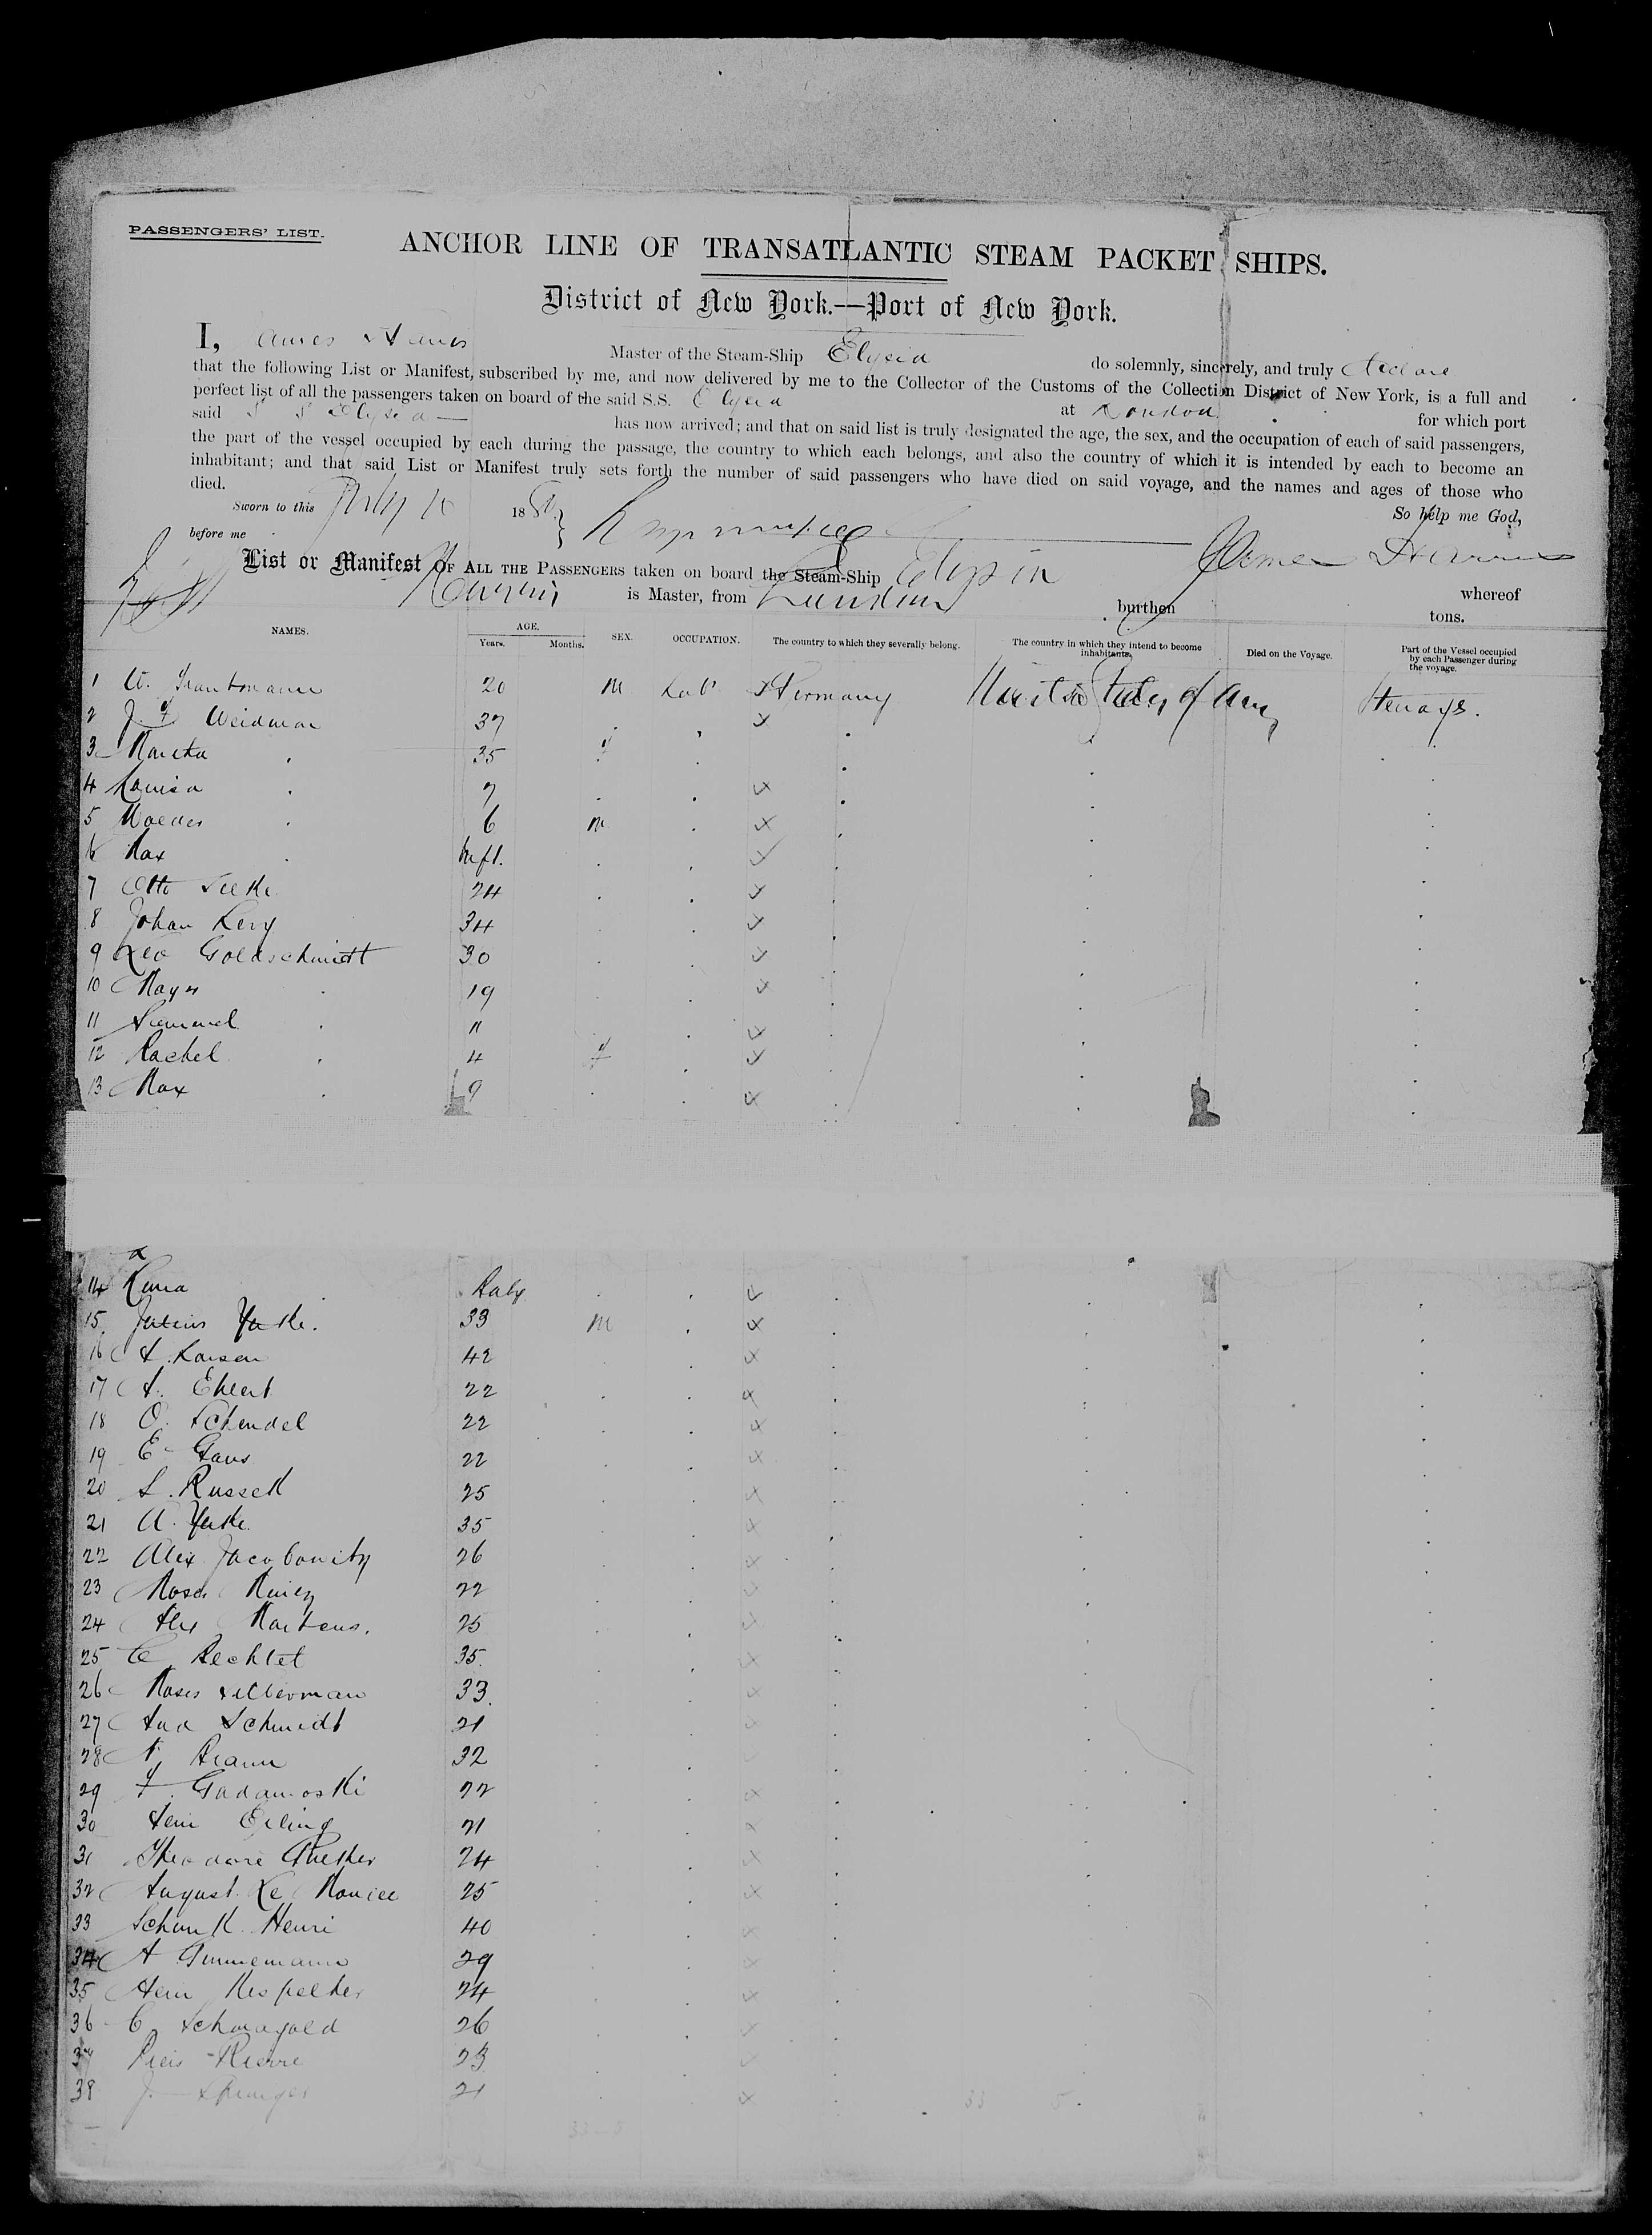 PASSENGERS' LIST.
ANCHOR LINE OF TRANSATLANTIC STEAM PACKET SHIPS.
District of New York.—Port of New York.
I, James Harris Master of the Steam-Ship Elysia do solemnly, sincerely, and truly declare
that the following List or Manifest, subscribed by me, and now delivered by me to the Collector of the Customs of the Collection District of New York, is a full and
perfect list of all the passengers taken on board of the said S.S. Elysia at London for which port
said S S Elysia has now arrived; and that on said list is truly designated the age, the sex, and the occupation of each of said passengers,
the part of the vessel occupied by each during the passage, the country to which each belongs, and also the country of which it is intended by each to become an
inhabitant; and that said List or Manifest truly sets forth the number of said passengers who have died on said voyage, and the names and ages of those who
died. So help me God,
Sworn to this July 10 18
before me James Harris
List or Manifest OF ALL THE PASSENGERS taken on board the Steam-Ship Elysia whereof
Harris is Master, from London burthen tons.
NAMES. AGE. Years. Months. SEX. OCCUPATION. The country to which they severally belong. The country in which they intend to become inhabitants. Died on the Voyage. Part of the Vessel occupied by each Passenger during the voyage.
1 W. Trautmann 20 M Lab Germany United States of Am Steerage.
2 J. F Weidman 37
3 Martha 35 f
4 Louisa 7
5 6 M
6 Max Inft.
7 Otto 24
8 Johan Levy 34
9 Leo Goldschmidt 30
10 19
11 11
12 Rachel 4 f
13 Max 9
14 Baby
15 Julius 33 M
16 A. Larsen 42
17 A. Ehlert 22
18 O. Schendel 22
19 E Gans 22
20 S. Russell 25
21 A. 35
22 Alex Jacobowitz 26
23 Moses 22
24 Martens. 25
25 C Bechtel 35.
26 Moses Silberman 33.
27 Schmidt 21
28 32
29 F. Gadamoski 22
30 Erling 21
31 Theodore 24
32 August Le 25
33 Schunk Henri 40
34 A 29
35 24
36 C 26
37 Pierre 23
38 J. Springer 21